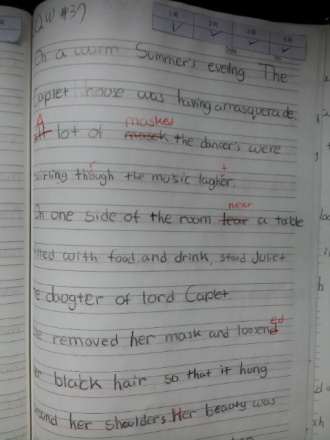 QW #37
On a warm Summer's eveling The
Caplet house was having a masquerade.
masked
A lot of mosck the dancer's were
through the mosic lagher.
near
On one side of the room tear a table
with food and drink, stood Juliet
dougter of lord Caplet
ed
removed her mask and loosend
black hair so that it hung
her shoulders. Her beauty was